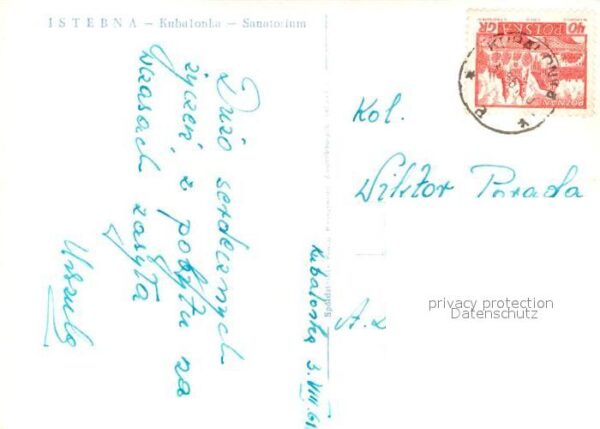 ISTEBNA – Kubalonka – Sanatorium
Dużo serdecznych
życzeń z pobytu na
wczasach zasyła
Urszula
Kubalonka 3.VIII.61
40 GR
POLSKA
POZNAŃ
Kol.
Wiktor Porada
privacy protection
Datenschutz